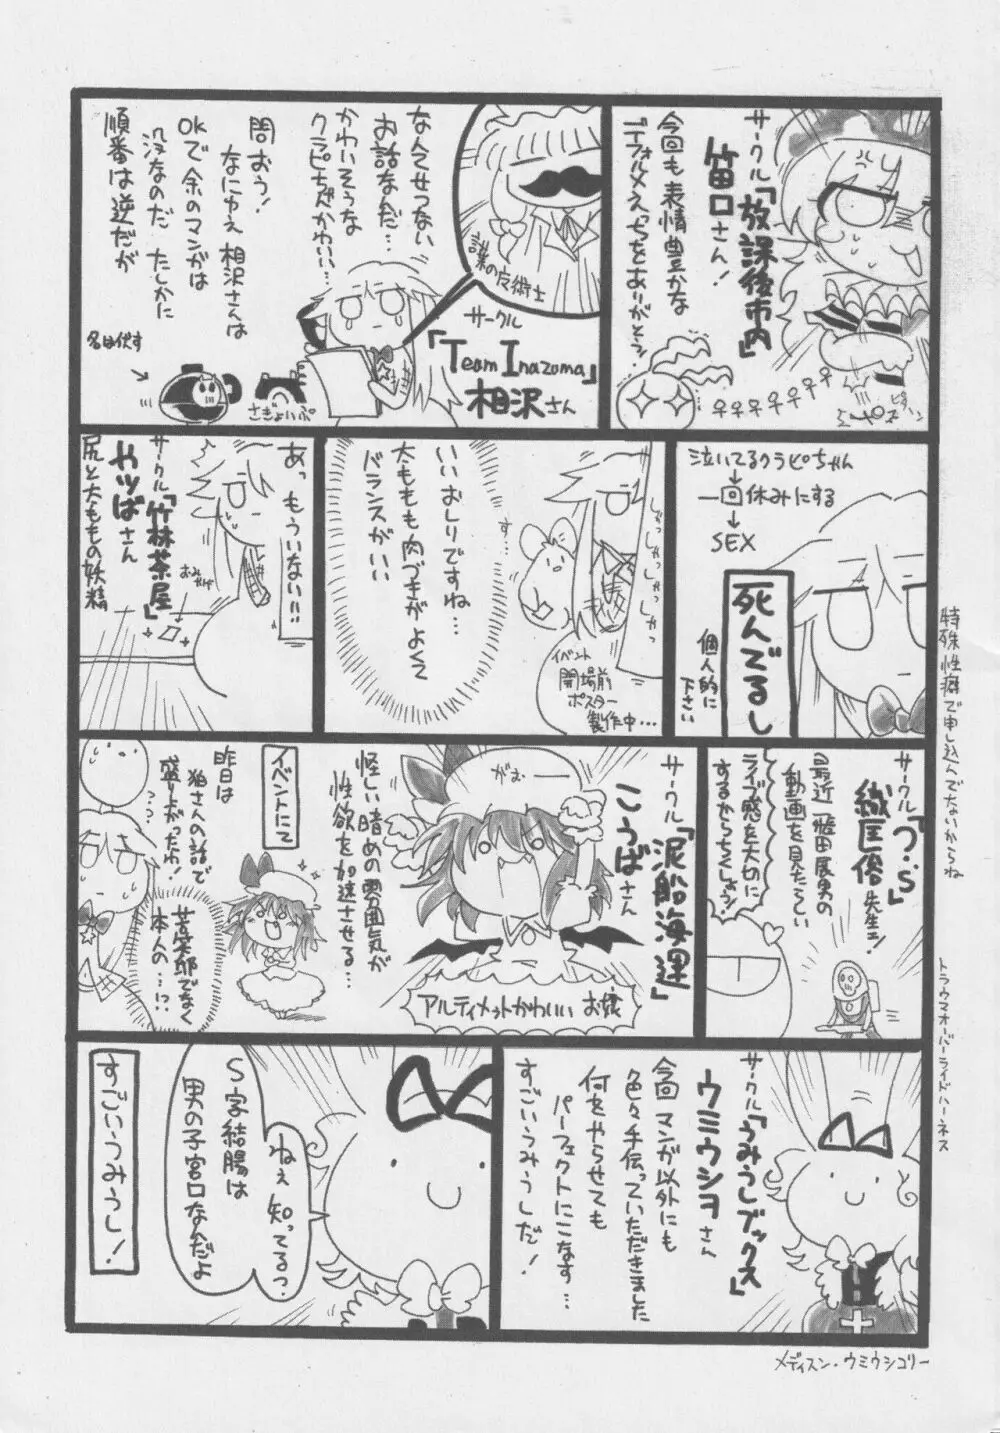 サークル「放課後市内」
笛口さん!
今回も表情豊かな
デフォルメえっちをありがとうっ!
サークル
「Team Inazuma」
相沢さん
なんてせつない
お話なんだ…
かわいそうな
クラピちゃんかわいい…
問おう!
なにゆえ相沢さんは
OKで余のマンガは
没なのだ たしかに
順番は逆だが
名は伏す
泣いてるクラピちゃん
↓
一回休みにする
↓
SEX
死んでるし
個人的に
下さい
しゃっ
しゃっ
しゃっ
しゃっ
す…
イベント
開場前
ポスター
製作中…
いいおしりですね…
太ももも肉づきがよくて
バランスがいい
あっ もういない!!
サークル「竹林茶屋」
やツばさん
尻と太ももの妖精
サークル「つ・S」
織匡俊先生ェ!
最近一飛田展男の
動画を見たらしい
ライブ感を大切に
するからちくしょう!
サークル「泥船海運」
こうばさん
がおーー
アルティメットかわいいお嬢
怪しい暗めの雰囲気が
性欲を加速させる…
イベントにて
昨日は
狛さんの話で
盛り上がったわ!
…?
苦笑邸でなく
本人の…!?
サークル「うみうしブックス」
ウミウシヨさん
今回マンガ以外にも
色々手伝っていただきました
何をやらせても
パーフェクトにこなす…
すごいうみうしだ!
ねぇ知ってるっ
S字結腸は
男の子宮口なんだよ
すごいうみうし!
特殊性癖で申し込んでないからね
トラウマオーバーライドハーネス
メディスン・ウミウシコリー